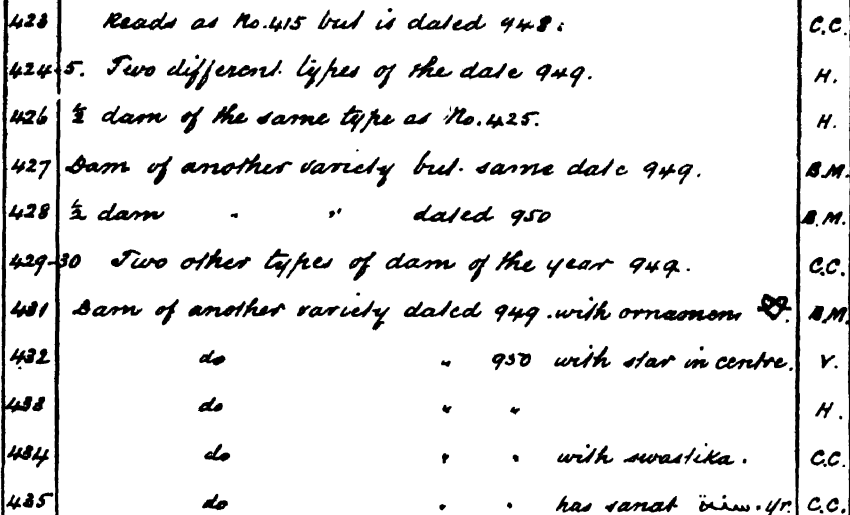 423 Reads as No. 415 but is dated 948. C.C.
424-5. Two different types of the date 949. H.
426 ½ dam of the same type as No. 425. H.
427 Dam of another variety but same date 949. B.M.
428 ½ dam " " dated 950 B.M.
429-30 Two other types of dam of the year 949. C.C.
431 Dam of another variety dated 949. with ornament B.M.
432 do " 950 with star in centre. V.
433 do " " H.
434 do " " with swastika. C.C.
435 do " " has sanat yr. C.C.